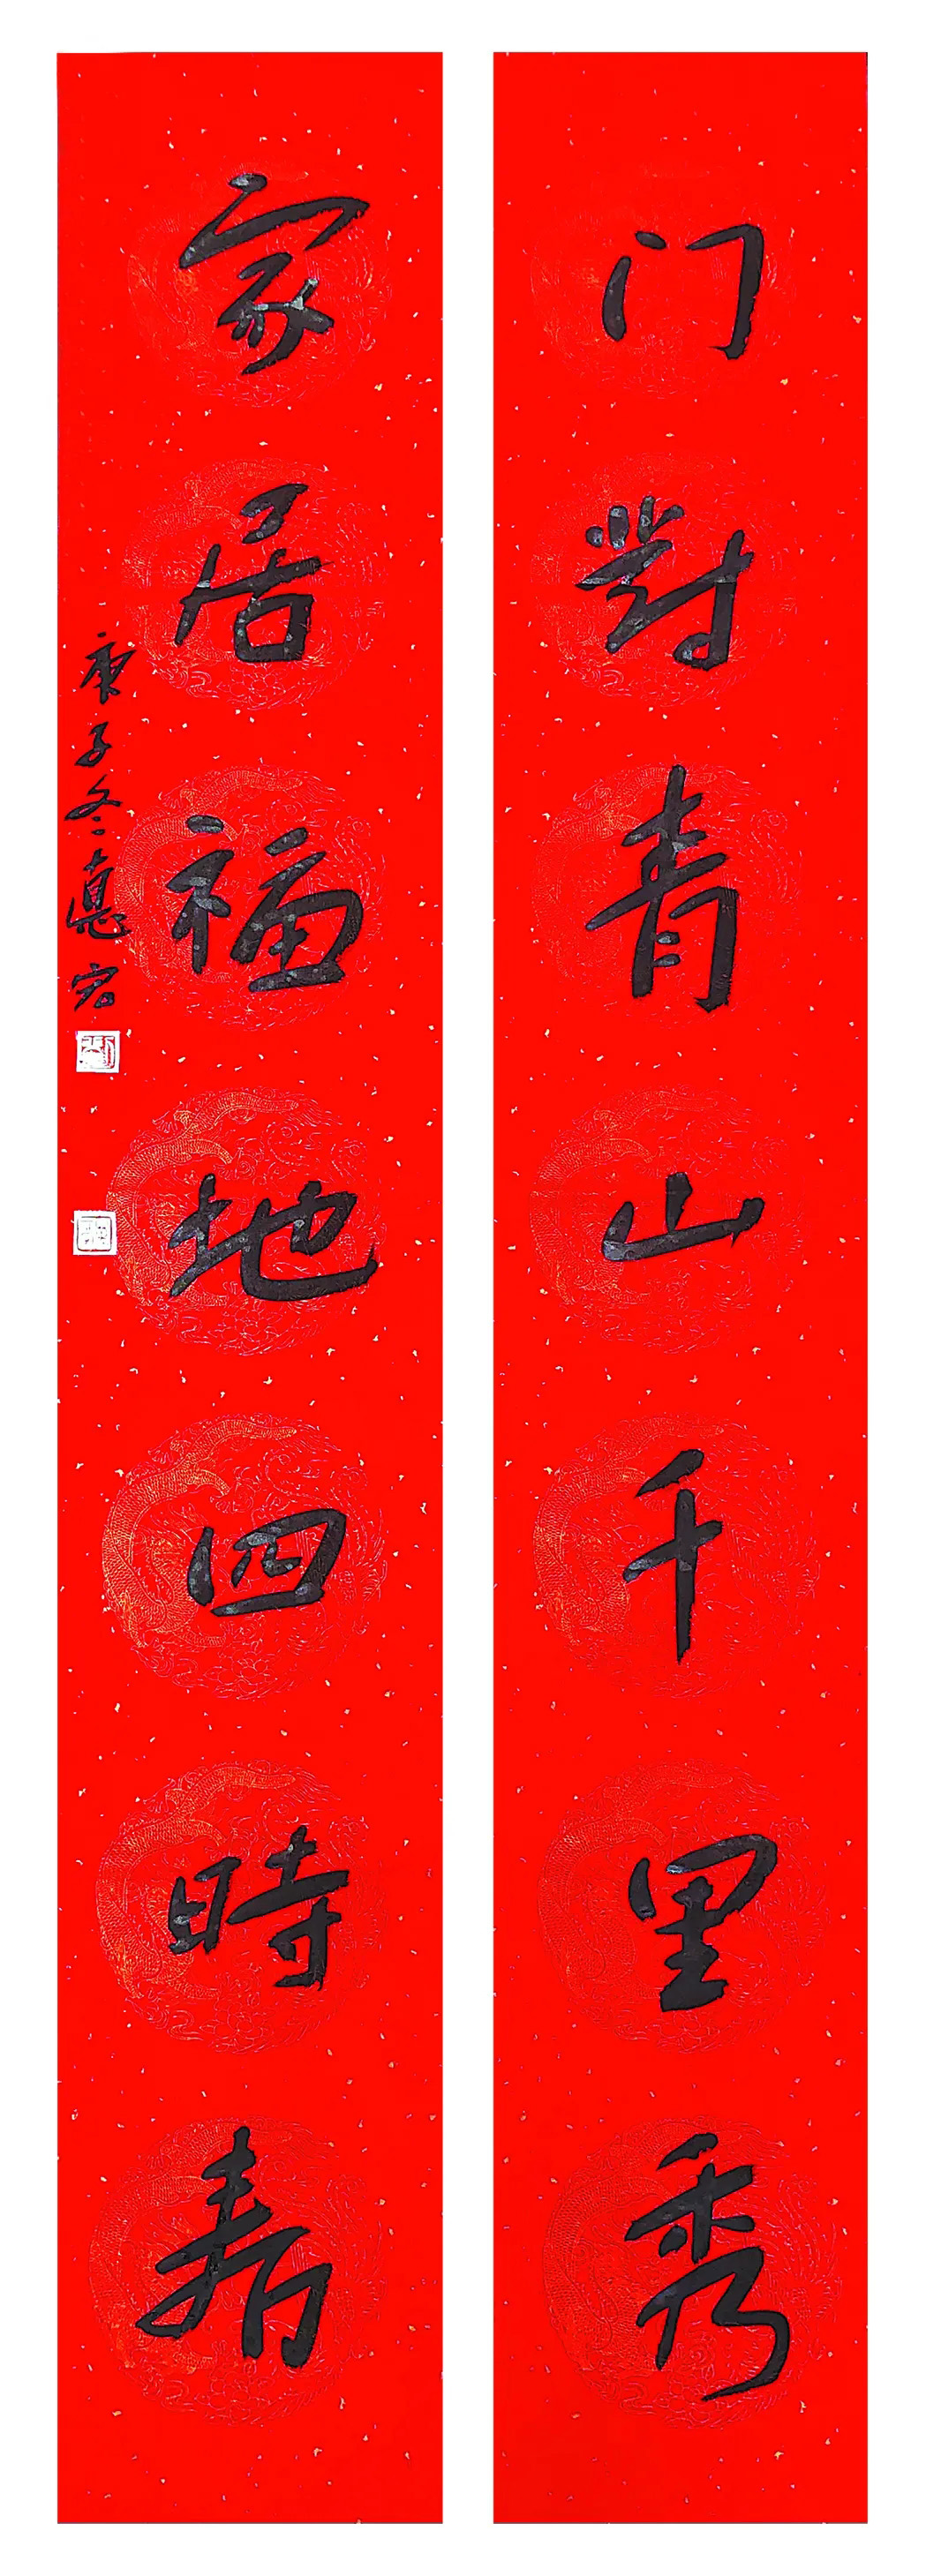 门對青山千里秀
家居福地四時春
庚子冬惠宏